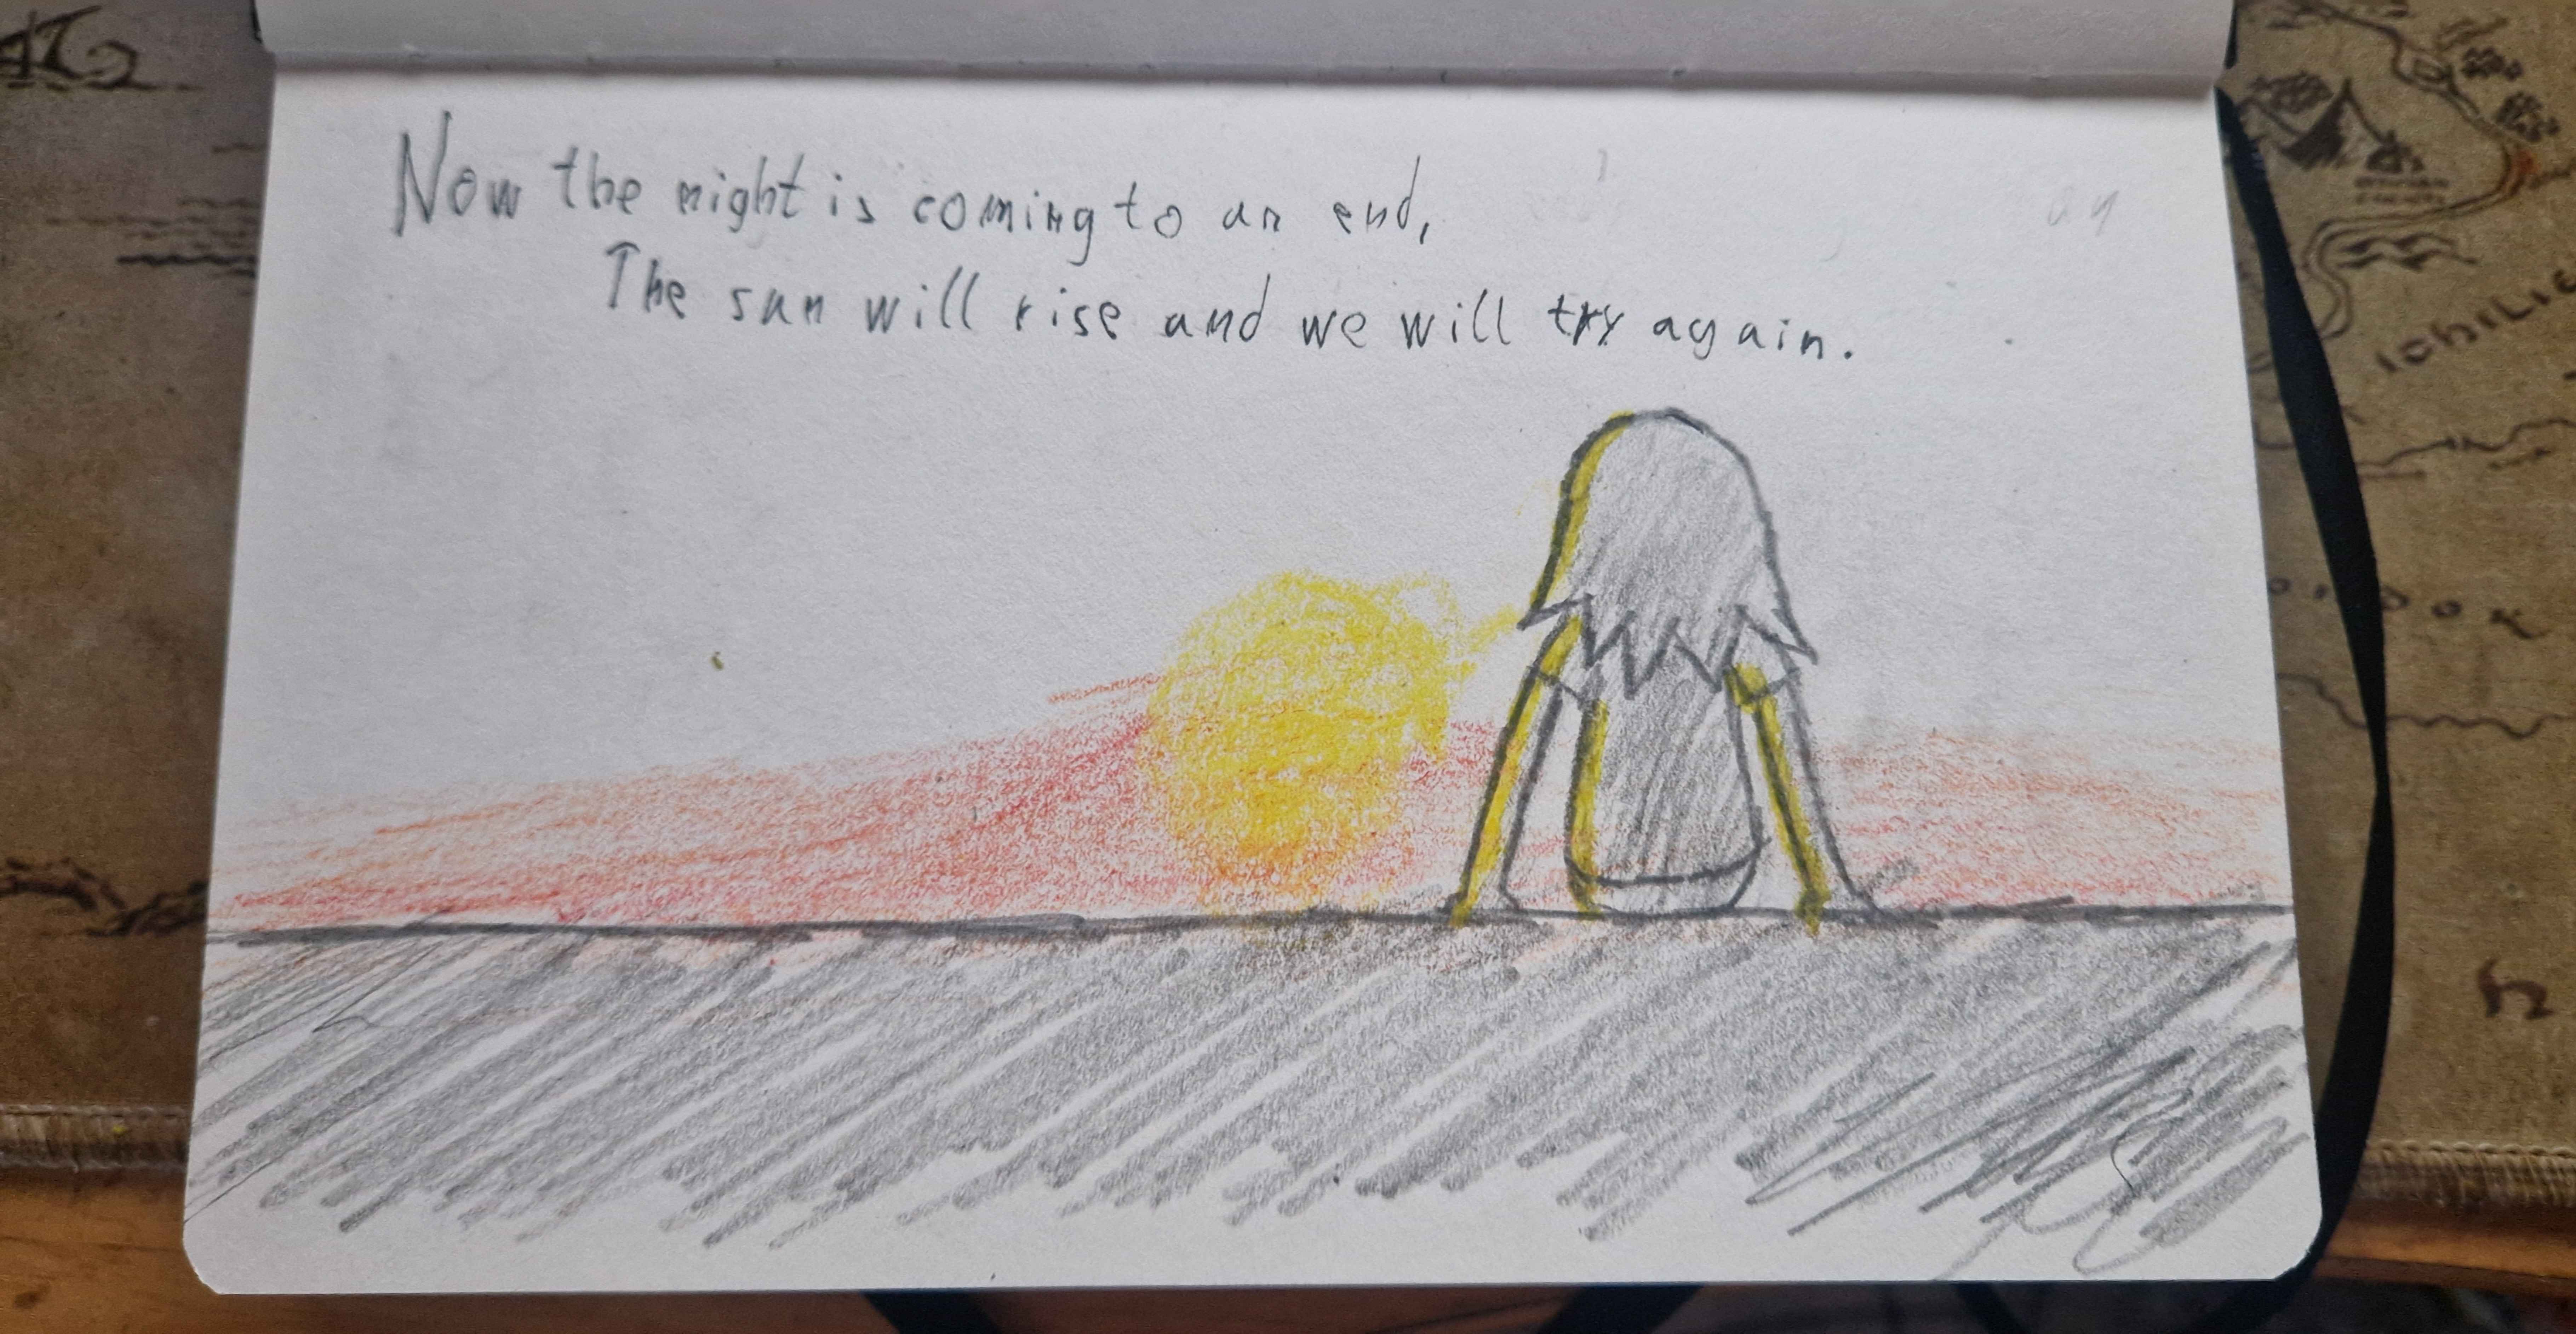 Now the night is coming to an end,
The sun will rise and we will try again.